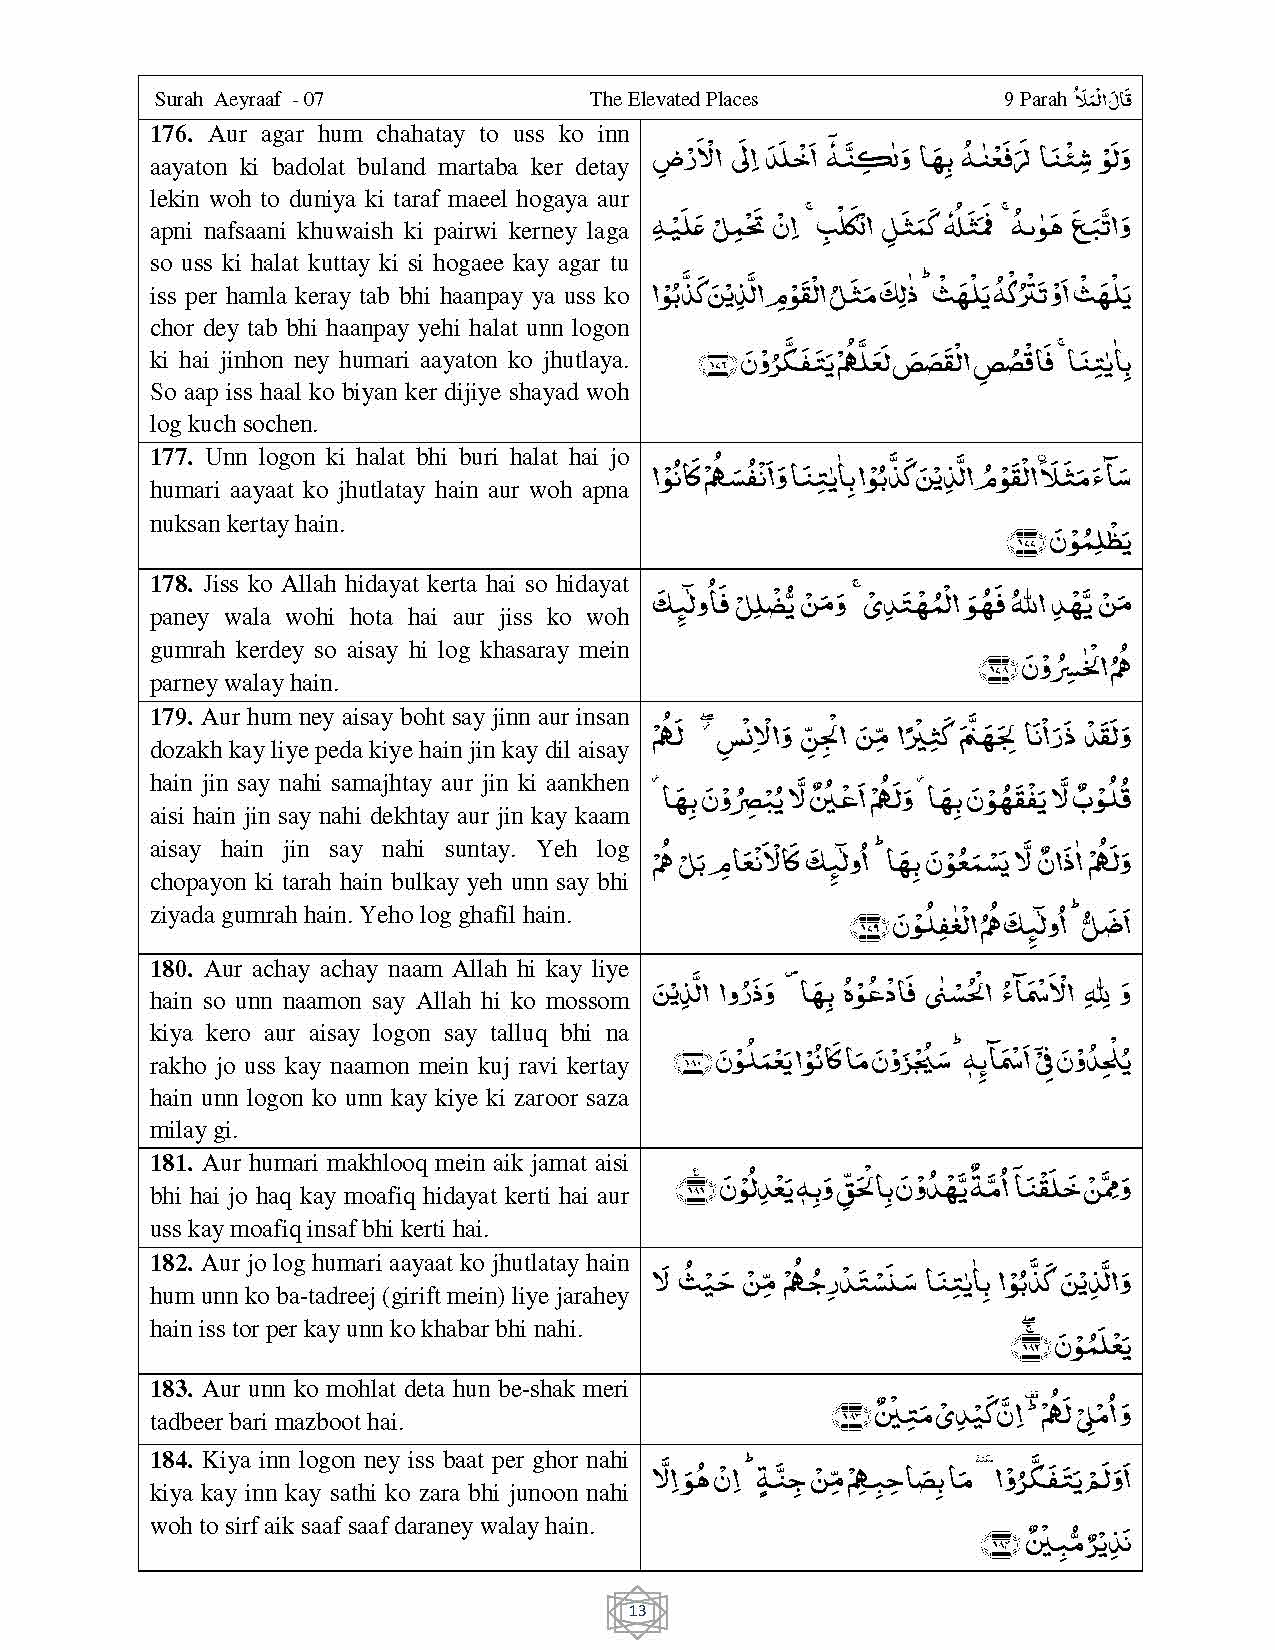 Surah Aeyraaf - 07 The Elevated Places 9 Parah قَالَ الْمَلَاُ
176. Aur agar hum chahatay to uss ko inn
aayaton ki badolat buland martaba ker detay
lekin woh to duniya ki taraf maeel hogaya aur
apni nafsaani khuwaish ki pairwi kerney laga
so uss ki halat kuttay ki si hogaee kay agar tu
iss per hamla keray tab bhi haanpay ya uss ko
chor dey tab bhi haanpay yehi halat unn logon
ki hai jinhon ney humari aayaton ko jhutlaya.
So aap iss haal ko biyan ker dijiye shayad woh
log kuch sochen.
وَلَوْ شِئْنَا لَرَفَعْنٰهُ بِهَا وَلٰكِنَّهٗۤ اَخْلَدَ اِلَى الْاَرْضِ
وَاتَّبَعَ هَوٰىهُ ۚ فَمَثَلُهٗ كَمَثَلِ الْكَلْبِ ۚ اِنْ تَحْمِلْ عَلَيْهِ
يَلْهَثْ اَوْ تَتْرُكْهُ يَلْهَثْ ؕ ذٰلِكَ مَثَلُ الْقَوْمِ الَّذِيْنَ كَذَّبُوْا
بِاٰيٰتِنَا ۚ فَاقْصُصِ الْقَصَصَ لَعَلَّهُمْ يَتَفَكَّرُوْنَ ﴿۱۷۶﴾
177. Unn logon ki halat bhi buri halat hai jo
humari aayaat ko jhutlatay hain aur woh apna
nuksan kertay hain.
سَآءَ مَثَلَاۨ الْقَوْمُ الَّذِيْنَ كَذَّبُوْا بِاٰيٰتِنَا وَاَنْفُسَهُمْ كَانُوْا
يَظْلِمُوْنَ ﴿۱۷۷﴾
178. Jiss ko Allah hidayat kerta hai so hidayat
paney wala wohi hota hai aur jiss ko woh
gumrah kerdey so aisay hi log khasaray mein
parney walay hain.
مَنْ يَّهْدِ اللّٰهُ فَهُوَ الْمُهْتَدِىْ ۚ وَمَنْ يُّضْلِلْ فَاُولٰٓئِكَ
هُمُ الْخٰسِرُوْنَ ﴿۱۷۸﴾
179. Aur hum ney aisay boht say jinn aur insan
dozakh kay liye peda kiye hain jin kay dil aisay
hain jin say nahi samajhtay aur jin ki aankhen
aisi hain jin say nahi dekhtay aur jin kay kaam
aisay hain jin say nahi suntay. Yeh log
chopayon ki tarah hain bulkay yeh unn say bhi
ziyada gumrah hain. Yeho log ghafil hain.
وَلَقَدْ ذَرَاْنَا لِجَهَنَّمَ كَثِيْرًا مِّنَ الْجِنِّ وَالْاِنْسِ ۖ٘ لَهُمْ
قُلُوْبٌ لَّا يَفْقَهُوْنَ بِهَا ؗ وَلَهُمْ اَعْيُنٌ لَّا يُبْصِرُوْنَ بِهَا ؗ
وَلَهُمْ اٰذَانٌ لَّا يَسْمَعُوْنَ بِهَا ؕ اُولٰٓئِكَ كَالْاَنْعَامِ بَلْ هُمْ
اَضَلُّ ؕ اُولٰٓئِكَ هُمُ الْغٰفِلُوْنَ ﴿۱۷۹﴾
180. Aur achay achay naam Allah hi kay liye
hain so unn naamon say Allah hi ko mossom
kiya kero aur aisay logon say talluq bhi na
rakho jo uss kay naamon mein kuj ravi kertay
hain unn logon ko unn kay kiye ki zaroor saza
milay gi.
وَ لِلّٰهِ الْاَسْمَآءُ الْحُسْنٰى فَادْعُوْهُ بِهَا ۪ وَذَرُوا الَّذِيْنَ
يُلْحِدُوْنَ فِىْۤ اَسْمَآئِهٖ ؕ سَيُجْزَوْنَ مَا كَانُوْا يَعْمَلُوْنَ ﴿۱۸۰﴾
181. Aur humari makhlooq mein aik jamat aisi
bhi hai jo haq kay moafiq hidayat kerti hai aur
uss kay moafiq insaf bhi kerti hai.
وَمِمَّنْ خَلَقْنَاۤ اُمَّةٌ يَّهْدُوْنَ بِالْحَقِّ وَبِهٖ يَعْدِلُوْنَ ﴿۱۸۱﴾
182. Aur jo log humari aayaat ko jhutlatay hain
hum unn ko ba-tadreej (girift mein) liye jarahey
hain iss tor per kay unn ko khabar bhi nahi.
وَالَّذِيْنَ كَذَّبُوْا بِاٰيٰتِنَا سَنَسْتَدْرِجُهُمْ مِّنْ حَيْثُ لَا
يَعْلَمُوْنَ ﴿۱۸۲﴾
183. Aur unn ko mohlat deta hun be-shak meri
tadbeer bari mazboot hai.
وَاُمْلِىْ لَهُمْ ؕ اِنَّ كَيْدِىْ مَتِيْنٌ ﴿۱۸۳﴾
184. Kiya inn logon ney iss baat per ghor nahi
kiya kay inn kay sathi ko zara bhi junoon nahi
woh to sirf aik saaf saaf daraney walay hain.
اَوَلَمْ يَتَفَكَّرُوْا ٚ مَا بِصَاحِبِهِمْ مِّنْ جِنَّةٍ ؕ اِنْ هُوَ اِلَّا
نَذِيْرٌ مُّبِيْنٌ ﴿۱۸۴﴾
13